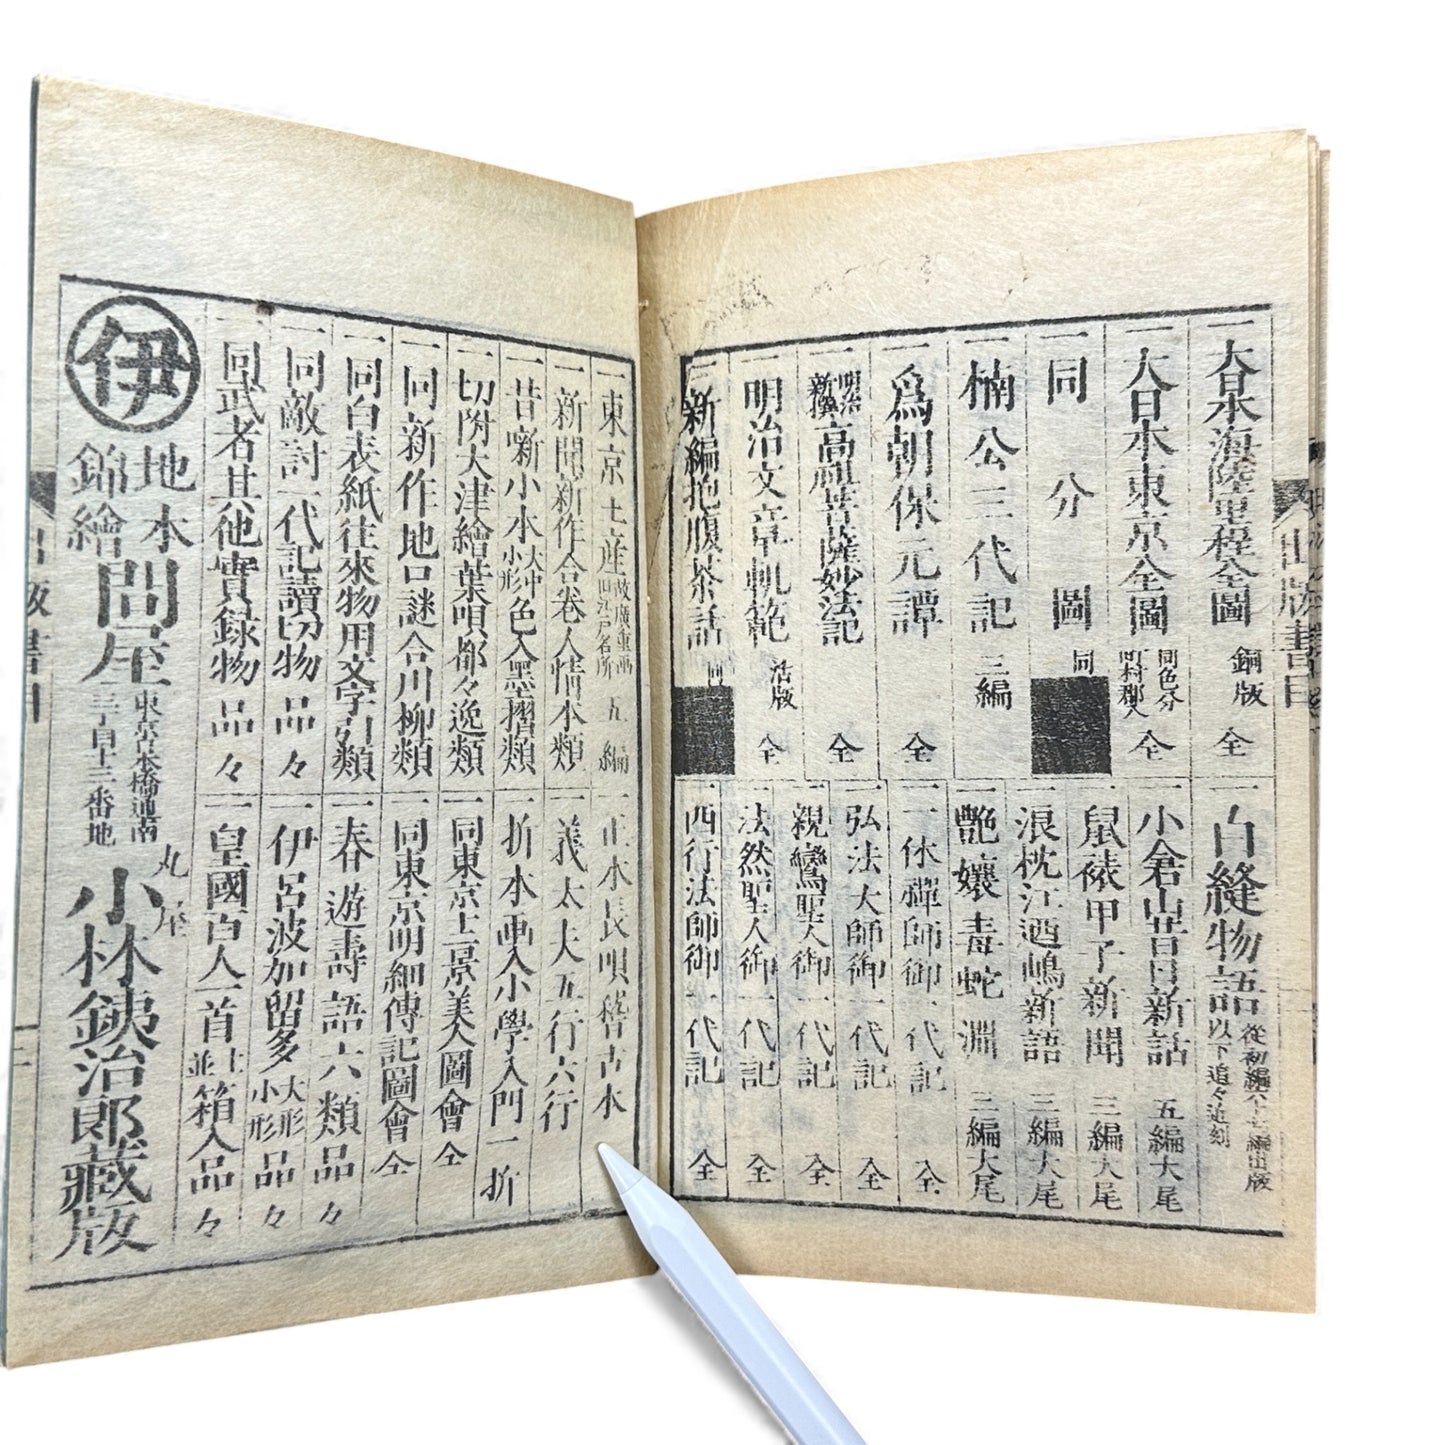 一大日本海陸里程全圖 銅版 全
一大日本東京全圖 同色分 町村郡入 全
一同分圖 同
一楠公三代記 三編
一爲朝保元譚 全
一明治新撰高祖菩薩妙法記 全
一明治文章軌範 活版 全
一新編抱腹茶話 同
一白縫物語 從初編六十七編出版 以下追々近刻
一小倉山昔日新話 五編大尾
一鼠裱甲子新聞 三編大尾
一浪枕江迺嶋新語 三編大尾
一艶孃毒蛇淵 三編大尾
一一休禪師御一代記 全
一弘法大師御一代記 全
一親鸞聖人御一代記 全
一法然聖人御一代記 全
一西行法師御一代記 全
出版書目
一東京土産 故廣重画 旧江戸名所 五編
一新聞新作合巻人情本類
一昔噺小本 大中小形 色入墨摺類
一切附大津繪葉唄都々逸類
一同新作地口謎合川柳類
一同白表紙往來物用文字引類
一同敵討一代記讀切物品々
一同武者其他實録物品々
一正本長唄稽古本
一義太夫五行六行
一折本画入小學入門一折
一同東京十二景美人圖會 全
一同東京明細傳記圖會 全
一春遊壽語六類品々
一伊呂波加留多 大形小形 品々
一皇國百人一首 上並 箱入品々
伊
地本錦繪問屋
東京京橋區南
三十間十三番地
丸屋
小林銕治郎藏版
出版書目